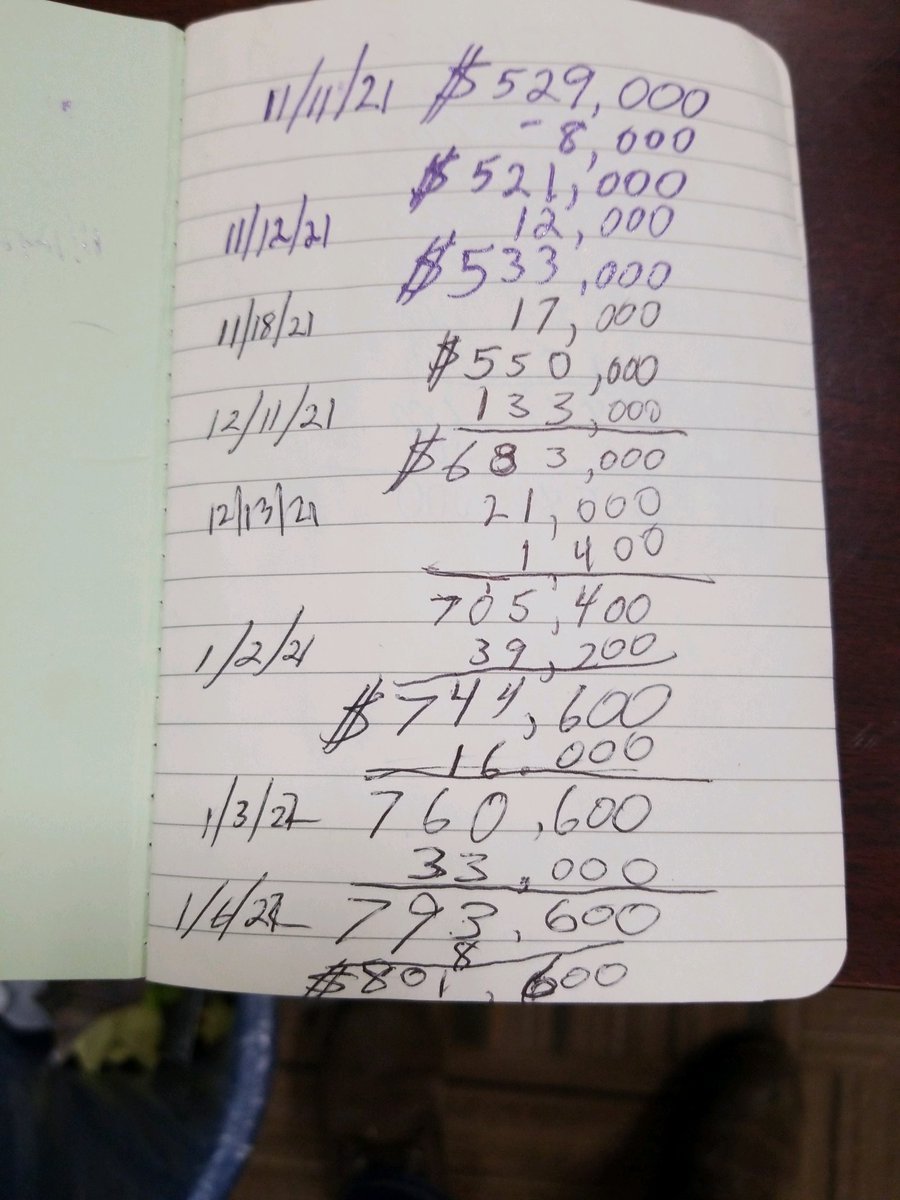 11/11/21 $529,000
-8,000
$521,000
11/12/21 12,000
$533,000
11/18/21 17,000
$550,000
12/11/21 133,000
$683,000
12/13/21 21,000
1,400
705,400
1/2/21 39,200
$744,600
16,000
1/3/22 760,600
33,000
1/6/22 793,600
8
$801,600